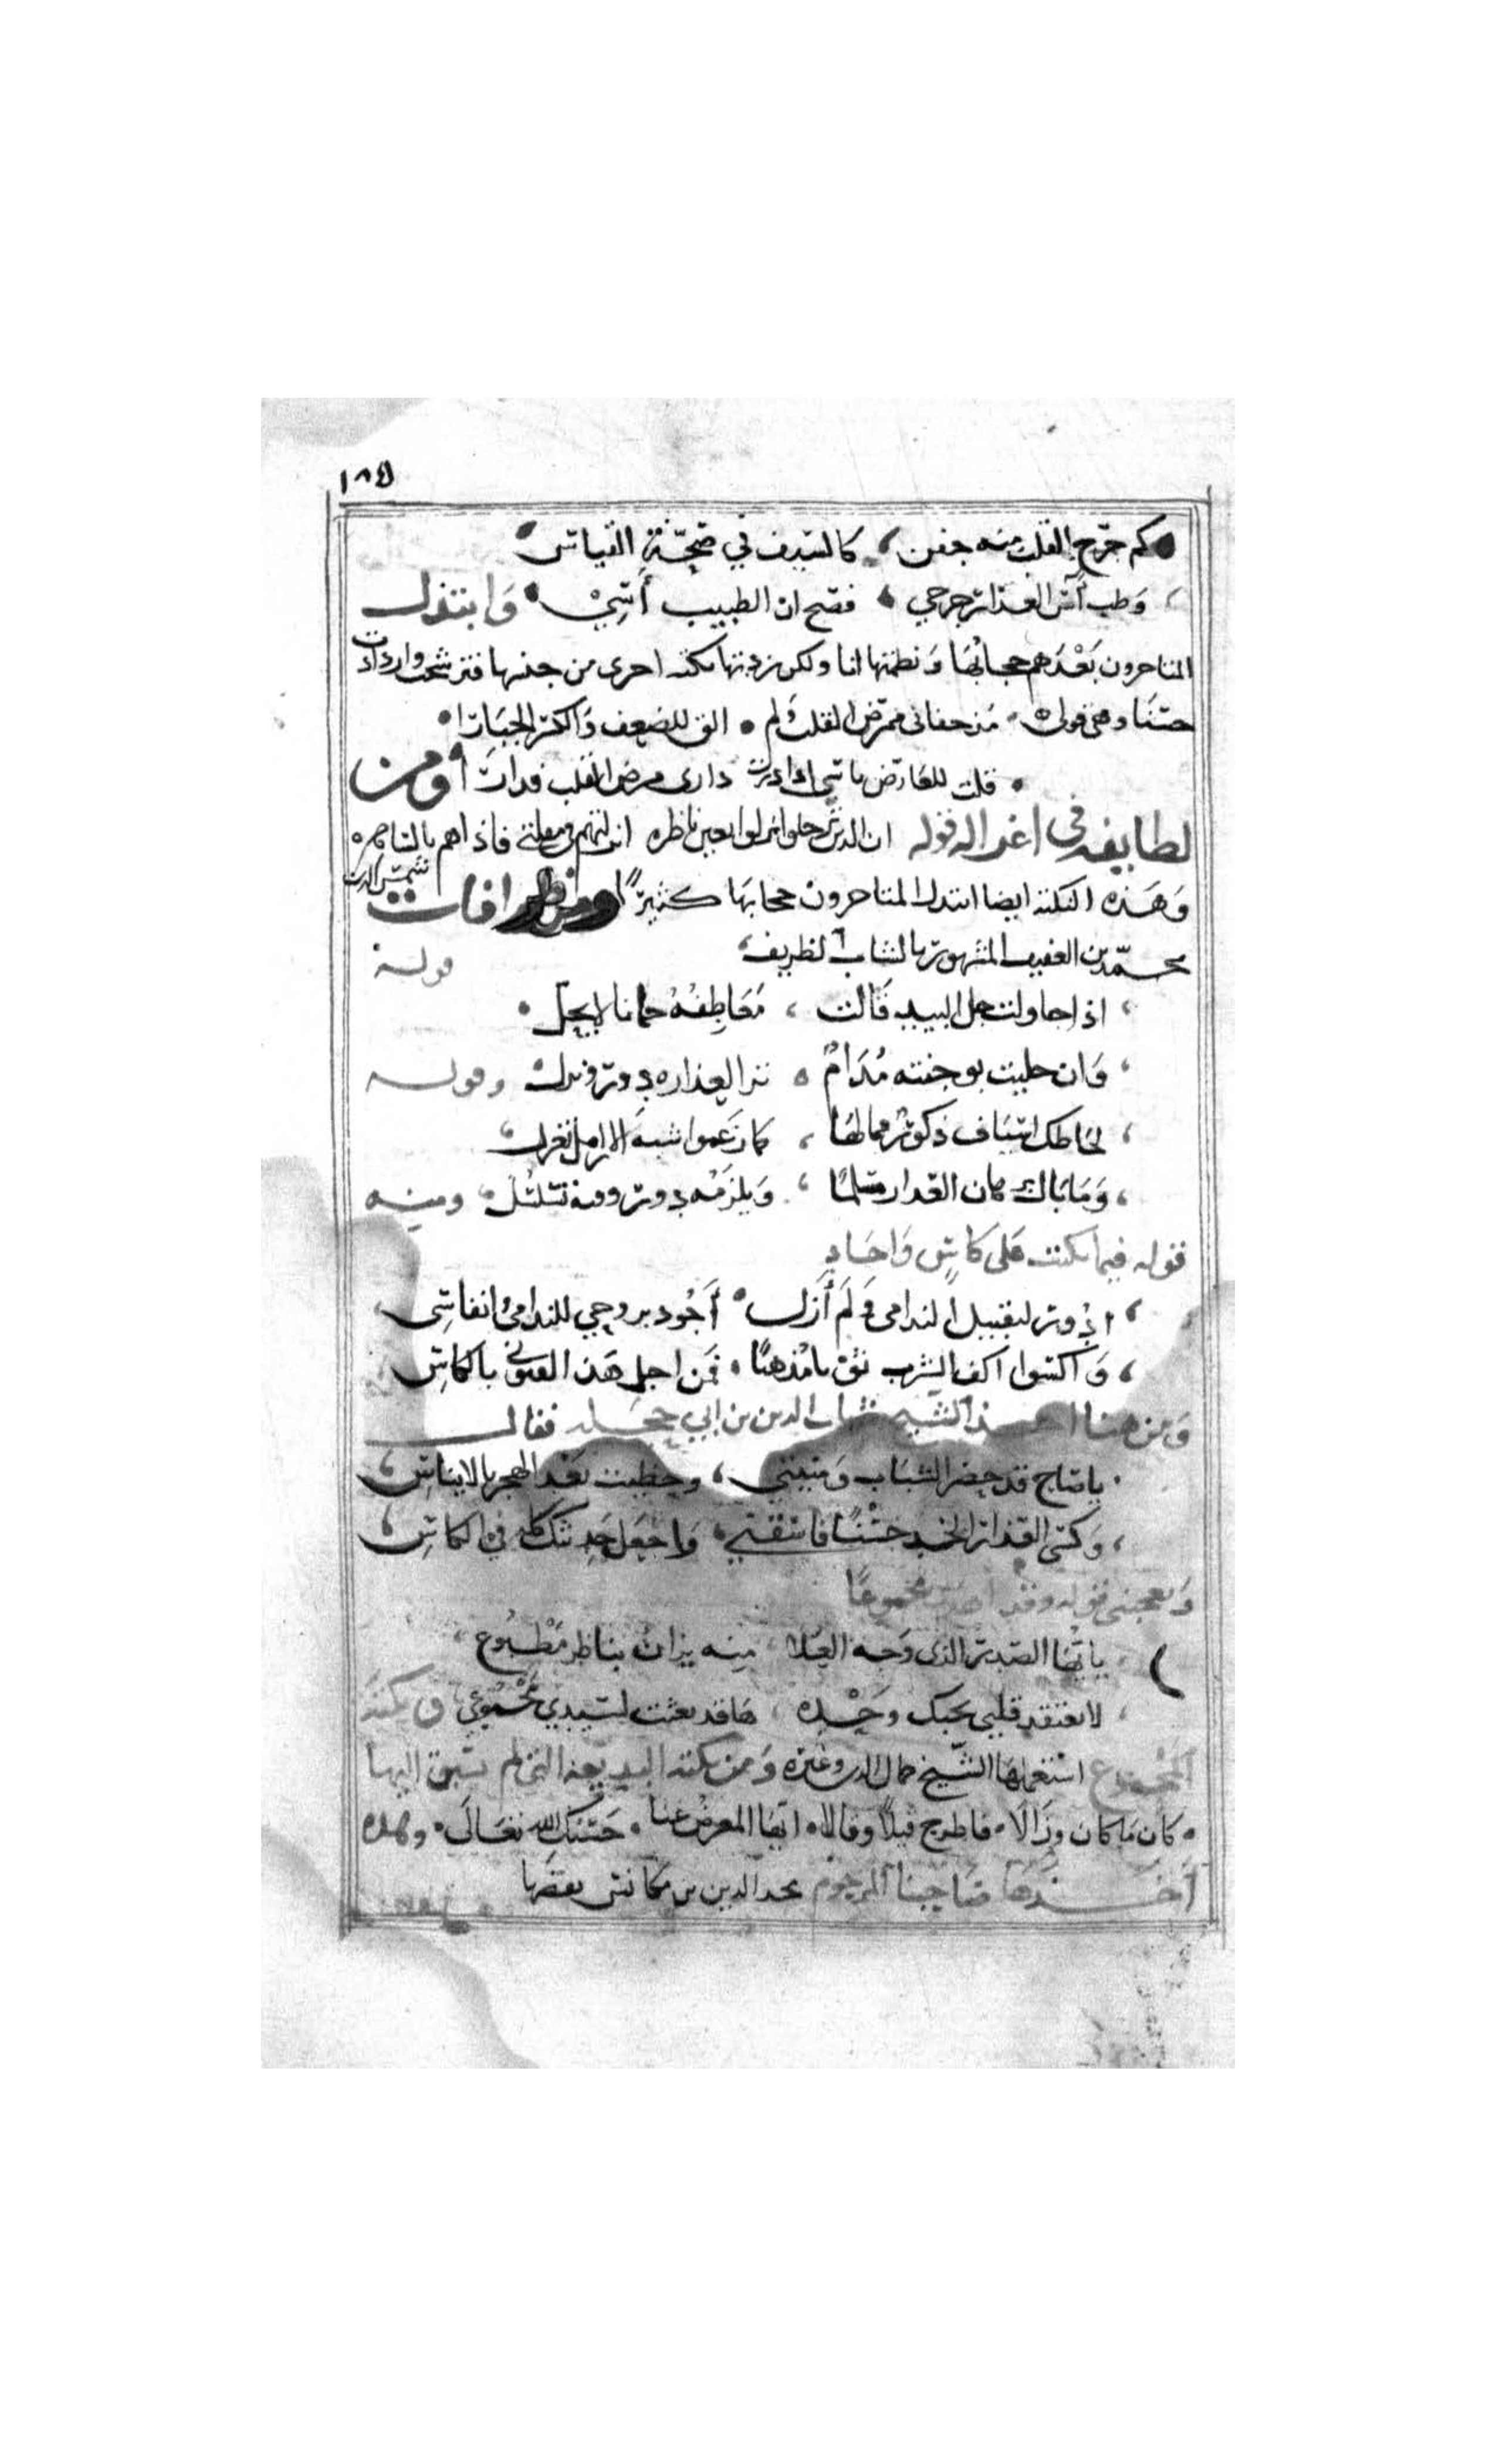 ١٨٤
كم جرح القلب منه جفن كالسيف في صحة القياس
وطب آس العذار جرحي فصح ان الطبيب آسي وابتذل
المتاخرون بعدهم حجابها ونظمتها انا ولكن زدتها نكتة اخرى من جنسها فترشحت وازدادت
حسنا وهي قولي مذ جفاني ممرض القلب ولم الق للضعف وللكسر الجبارا
قلت للعارض يا آسي اذا درت داري مرض القلب فدارا ومن
لطايفه في اغزاله قوله ان الذين ترحلوا نزلوا بعين ناظره انزلتهم في مقلتي فاذا هم بالساهره
وهذه النكتة ايضا ابتذل المتاخرون حجابها كثيرا ومن ظرافات شمس الدين
محمد بن العفيف المشهور بالشاب الظريف قوله
اذا حاولت حل البند قالت معاطفه حمانا لا يحل
وان جليت بوجنته مدام نرا لعذاره دور ونزل وقوله
لحاظك اسياف ذكور فمالها كما زعموا شبه الارامل تغزل
وما بال كان العذار مسلما ويلزمه دور وفيه تسلسل ومنه
قوله فيما يكتب على كاس واجاد
ادور لتقبيل الندامى ولم أزل أجود بروحي للندامى وانفاسي
واكسوا اكف الشرب ثوبا مذهبا فمن اجل هذا لقبوني بالكاس
ومن هنا اخذ الشيخ شهاب الدين بن ابي حجلة فقال
يا صاح قد حضر الشباب ومنيتي وحظيت بعد الهجر بالايناس
وكسى العذار الخد حسنا فاسقني واجعل حديثك كله في الكاس
ويعجبني قوله وقد اهدى مجموعا
يا أيها الصدر الذي وجه العلا منه يزان بناظر مطبوع
لا تعتقد قلبي يحبك وحده ها قد بعثت لسيدي مجموعي ونكتة
المجموع استعملها الشيخ جمال الدين وغيره ومن نكته البديعة التي لم يسبق اليها
كان ما كان وزالا فاطرح قيلا وقالا ايها المعرض عنا حسبك الله تعالى وهذه
أخذها صاحبنا المرحوم مجد الدين بن مكانس بعضها